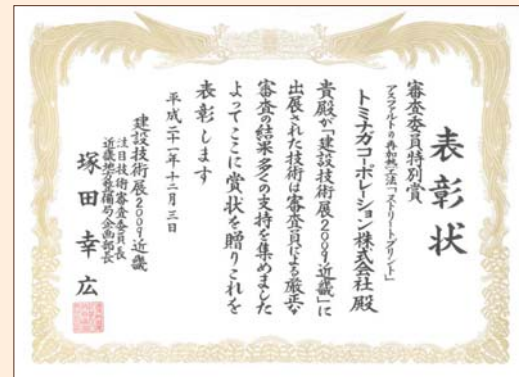 表彰状
審査委員特別賞
アスファルトの再加熱工法「ストリートプリント」
トミナガコーポレーション株式会社 殿
貴殿が「建設技術展2009近畿」に
出展された技術は審査員による厳正な
審査の結果多くの支持を集めました
よってここに賞状を贈りこれを
表彰します
平成二十一年十二月三日
建設技術展2009近畿
注目技術審査委員長
近畿地方整備局企画部長
塚田幸広